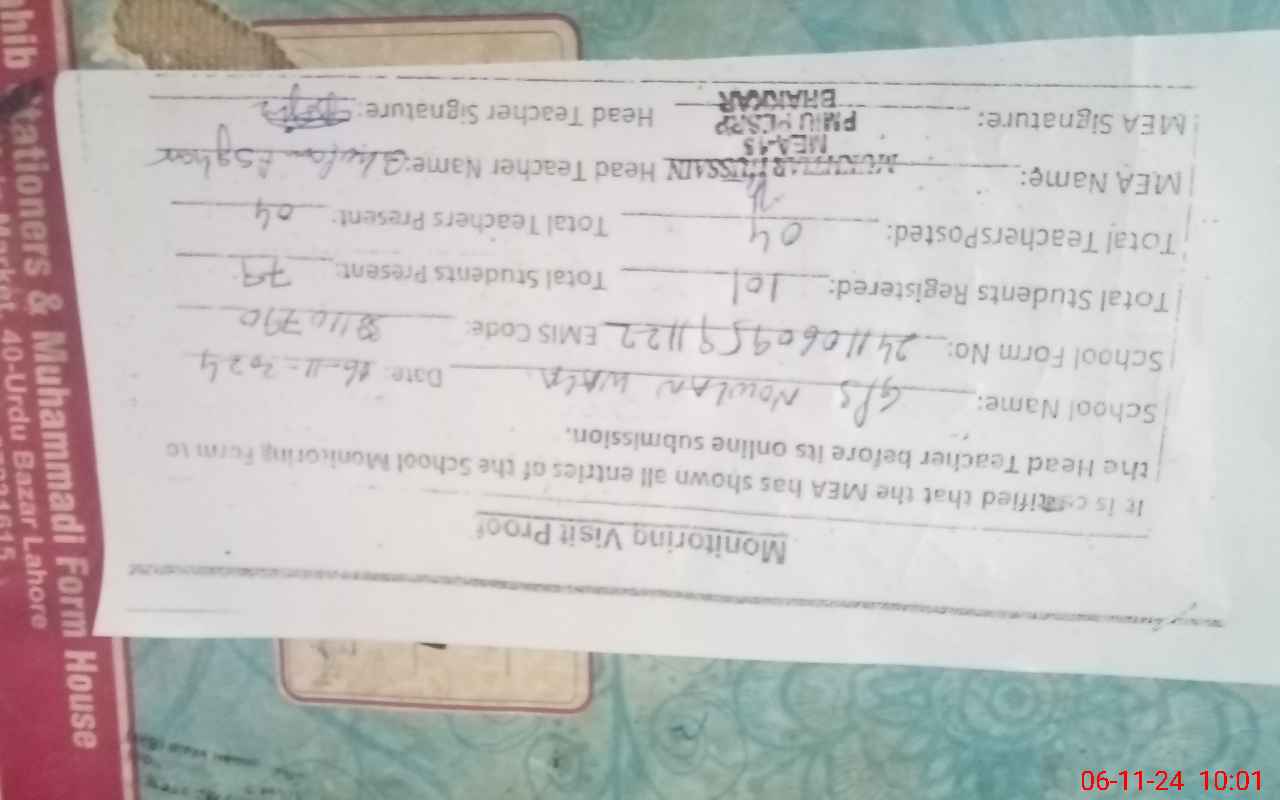 Monitoring Visit Proof
It is certified that the MEA has shown all entries of the School Monitoring Form to
the Head Teacher before its online submission.
School Name: GPS NOWLAN WALA Date: 06-11-2024
School Form No: 24110609591122 EMIS Code: 38110790
Total Students Registered: 101 Total Students Present: 79
Total TeachersPosted: 04 Total Teachers Present: 04
MEA Name: MUKHTIAR HUSSAIN Head Teacher Name: Asghar
MEA-15
PMIU PESRP
BHAKKAR
MEA Signature: Head Teacher Signature:
hib Stationers & Muhammadi Form House
Market, 40-Urdu Bazar Lahore
06-11-24 10:01